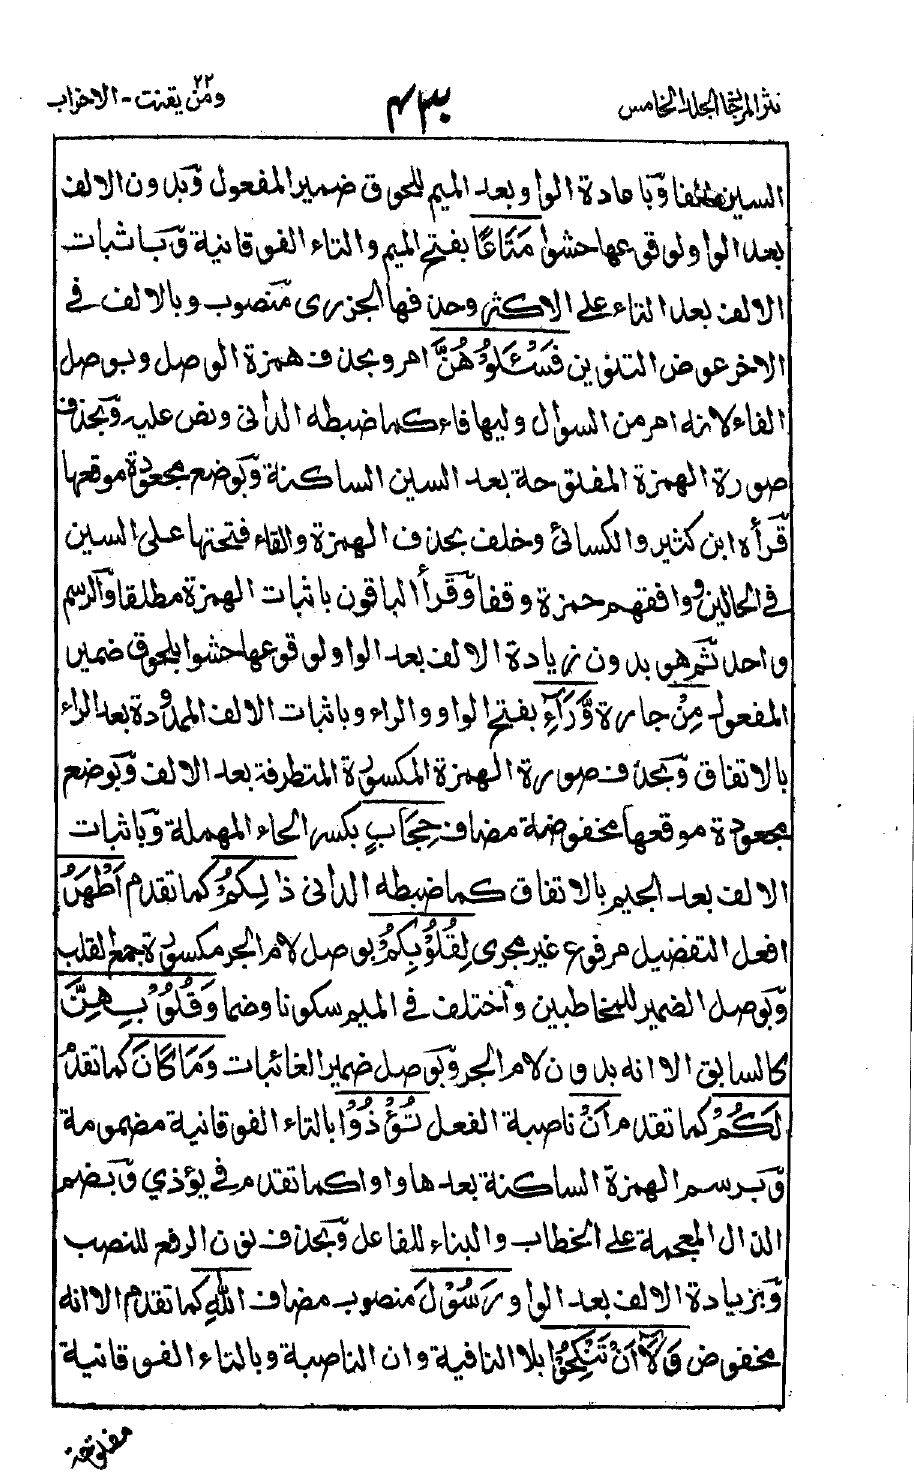 نثر المرجان الجلد الخامس
٤٣٠
ومن يقنت ٢٢ - الاحزاب
السين مخففا وباعادة الواو بعد الميم للحوق ضمير المفعول وبدون الالف
بعد الواو لوقوعها حشوا مَتَاعًا بفتح الميم والتاء الفوقانية وباثبات
الالف بعد التاء على الاكثر وحذفها الجزرى منصوب وبالالف فى
الاخر عوض التنوين فَسْـَٔلُوْهُنَّ امر وبحذف همزة الوصل وبوصل
الفاء لانه امر من السؤال وليها فاء كما ضبطه الدانى ونص عليه وبحذف
صورة الهمزة المفتوحة بعد السين الساكنة وبوضع مجعودة موقعها
قرأه ابن كثير والكسائى وخلف بحذف الهمزة والقاء فتحتها على السين
فى الحالين ووافقهم حمزة وقفا وقرأ الباقون باثبات الهمزة مطلقا والرسم
واحد ثم هو بدون زيادة الالف بعد الواو لوقوعها حشوا بلحوق ضمير
المفعول مِنْ جارة وَّرَآءِ بفتح الواو والراء وباثبات الالف الممدودة بعد الراء
بالاتفاق وبحذف صورة الهمزة المكسورة المتطرفة بعد الالف وبوضع
مجعودة موقعها مخفوضة مضاف حِجَابٍ بكسر الحاء المهملة وباثبات
الالف بعد الجيم بالاتفاق كما ضبطه الدانى ذٰلِكُمْ كما تقدم اَطْهَرُ
افعل التفضيل مرفوع غير مجرى لِقُلُوْبِكُمْ بوصل لام الجر مكسورة جمع القلب
وبوصل الضمير للمخاطبين واختلف فى الميم سكونا وضما وَقُلُوْبِهِنَّ
كالسابق الا انه بدون لام الجر وبوصل ضمير الغائبات وَمَا كَانَ كما تقدم
لَكُمْ كما تقدم اَنْ ناصبة الفعل تُؤْذُوْا بالتاء الفوقانية مضمومة
وبرسم الهمزة الساكنة بعدها واوا كما تقدم فى يؤذي وبضم
الذال المعجمة على الخطاب والبناء للفاعل وبحذف نون الرفع للنصب
وبزيادة الالف بعد الواو رَسُوْلَ منصوب مضاف اللّٰهِ كما تقدم الا انه
مخفوض وَلَآ اَنْ تَنْكِحُوْٓا بلا النافية وان الناصبة وبالتاء الفوقانية
مفتوحة